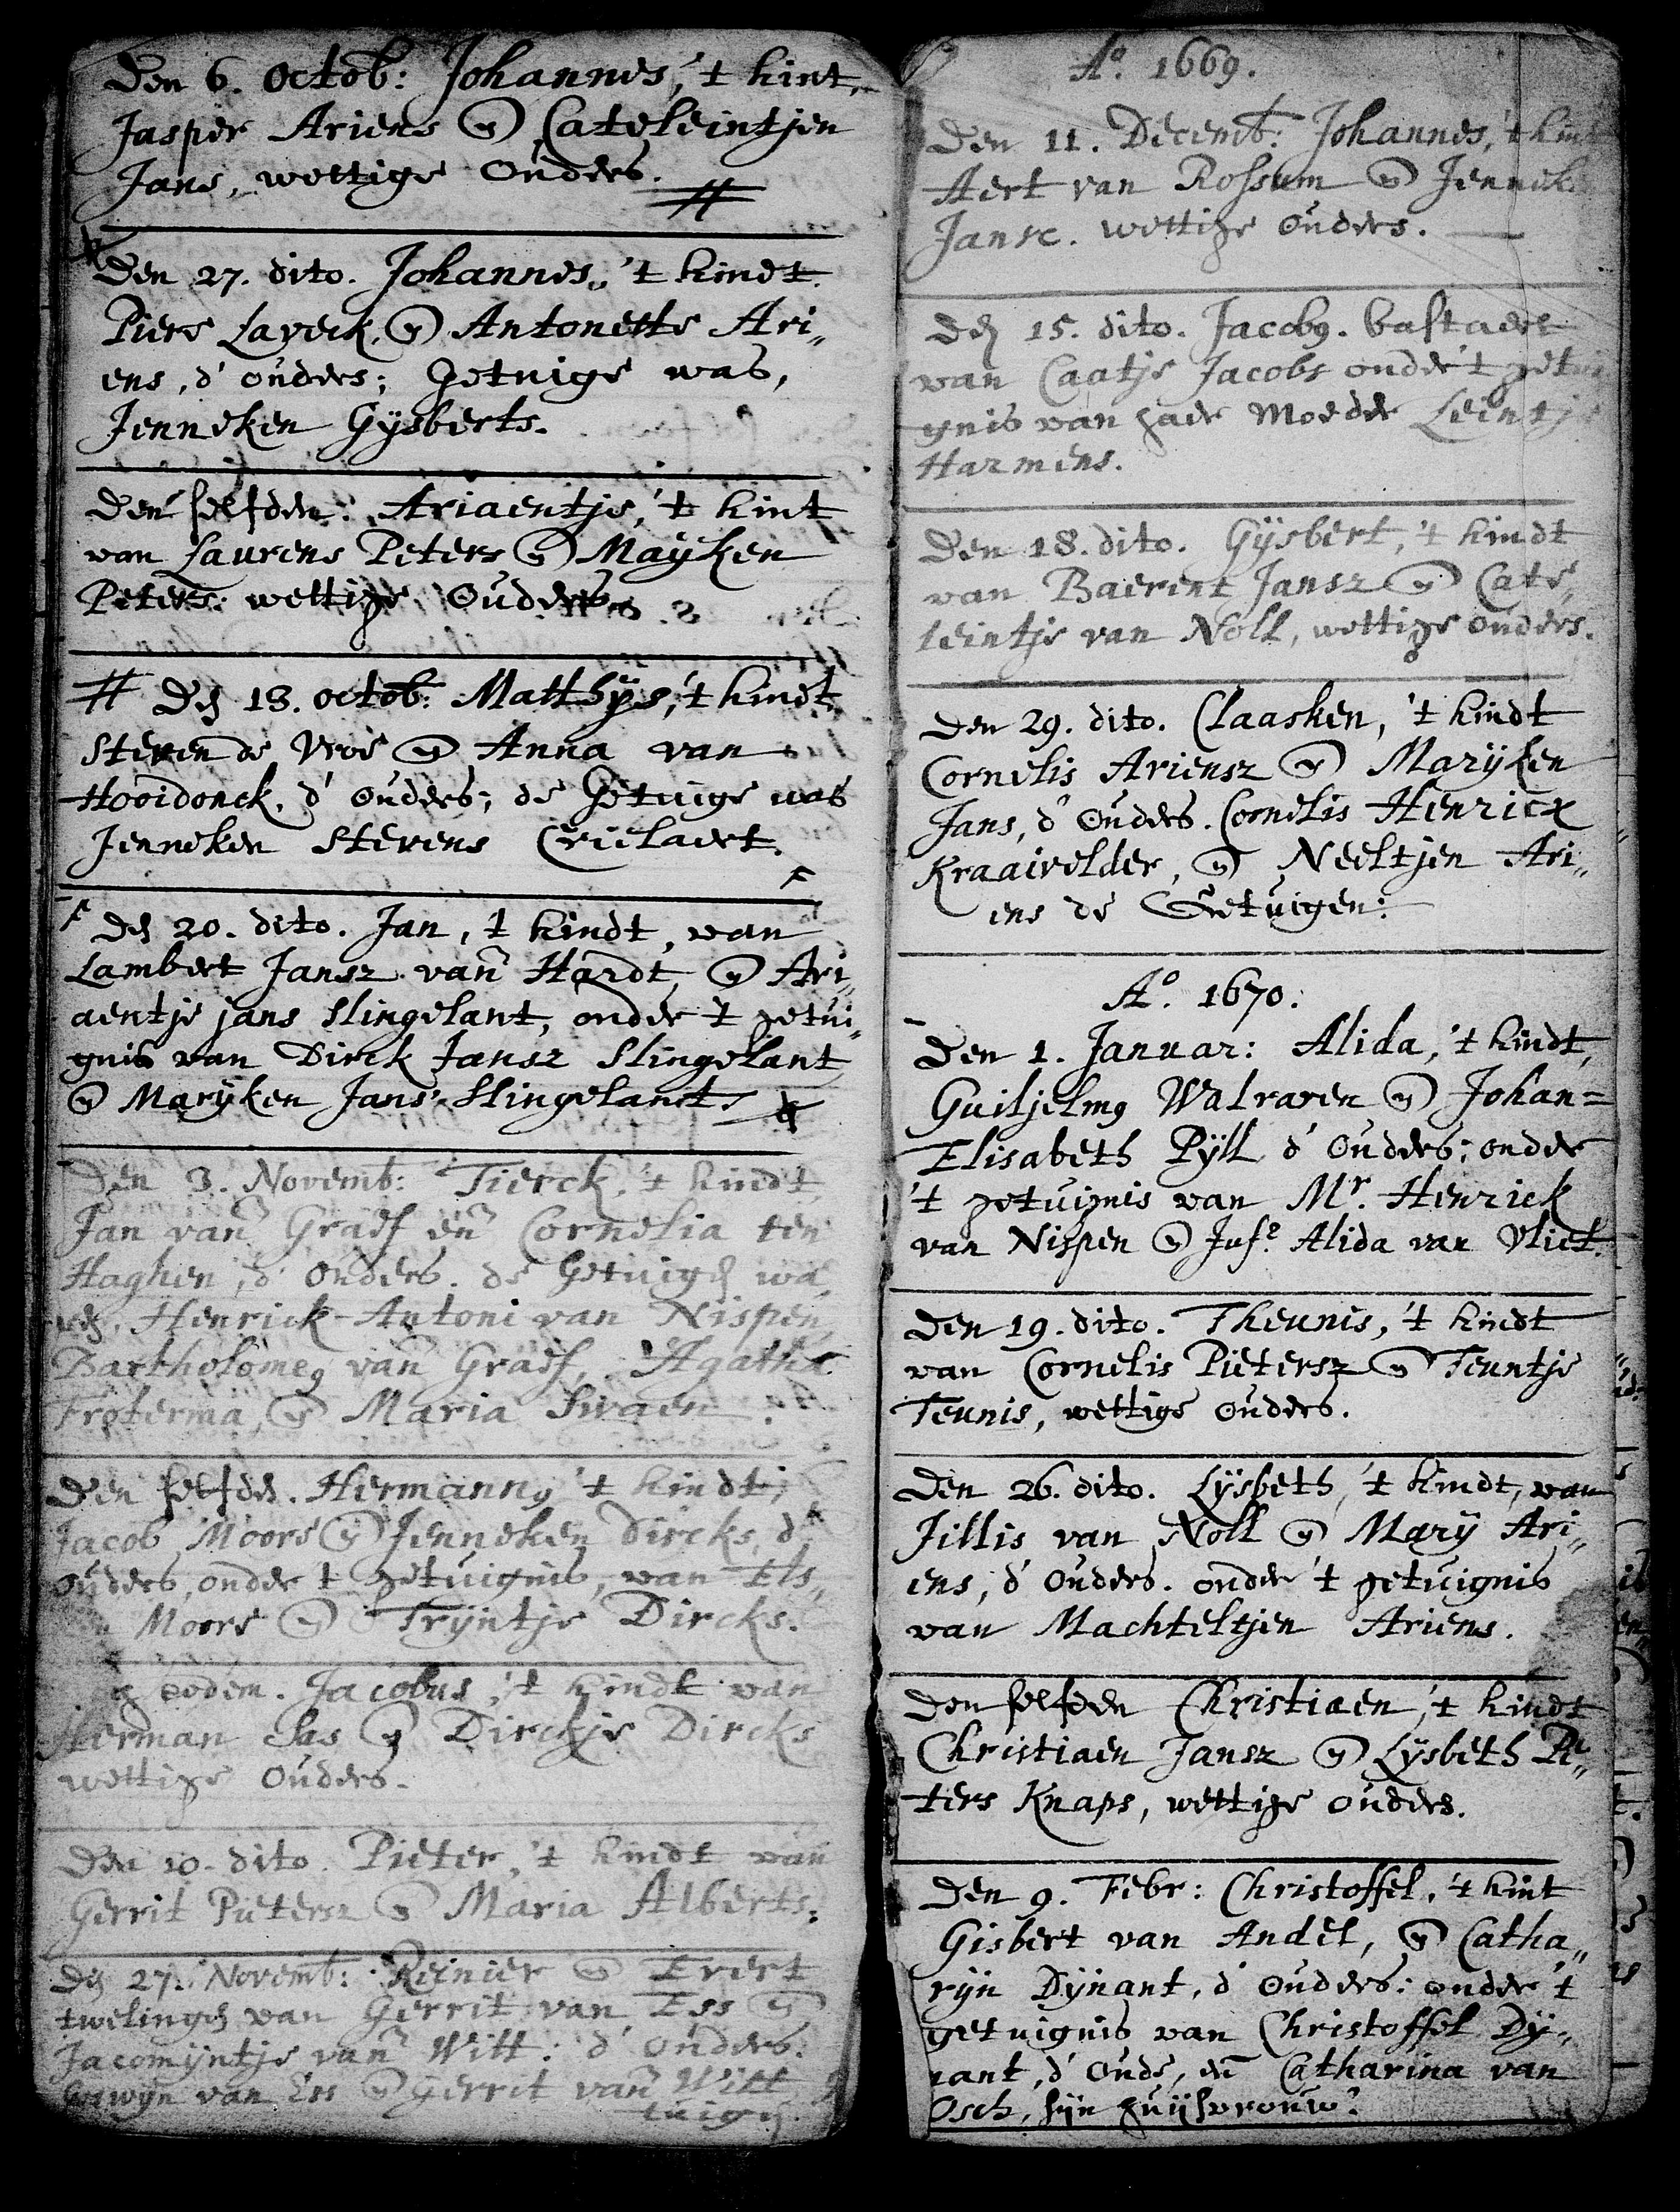 Den 6. Octob: Johannes, 't kint,
Jasper Ariens en Cateleintjen
Jans, wettige Ouders. #
# Den 27. dito. Johannes, 't kindt.
Piers Laveck, en Antonette Ari„
ens, d' ouders; getuige was,
Jenneken Gÿsberts.
Den selfden: Ariaentje, 't kint
van Laurens Peters en Maÿken
Peters: wettige Ouders
# Den 13. octob: Matthÿs, 't kindt
Steven de Vroe en Anna van
Hooidonck, d' Ouders; de Getuige was
Jenneken Stevens Crielaert.
Den 20. dito. Jan, 't kindt, van
Lambert Jansz. van Hardt, en Ari„
aentje jans Slingelant, onder 't getui„
gnis van Dirck Jansz Slingelant
en Marÿken Jans Slingelant. #
Den 3. Novemb: Tierck, 't kindt,
Jan van Graef en Cornelia ten
Haghen, d' Ouders. de Getuigen wa„
ren, Henrick Antoni van Nispen,
Bartholomeus van Graef, Agatha
en Maria Swaen.
Den selfden. Hermannus 't kindt,
Jacob Moors en Jenneken Dircks, d'
ouders, onder 't getuignis, van Els„
Moors en Trÿntje Dircks.
eodem. Jacobus, 't kindt van
Herman Sas en Dirckje Dircks
wettige Ouders.
Den 10. dito. Pieter, 't kindt van
Gerrit Pietersz en Maria Alberts.
Den 27. Novemb: Reinier en Evert
twelingen van Gerrit van Ess en
Jacomÿntje van Witt: d' Ouders.
van Ess en Gerrit van Witt
tuigen.
Ao. 1669.
Den 11. Decemb: Johannes, 't kindt
Aert van Rossum en Jenneke
Jansc. wettige Ouders.
Den 15. dito. Jacobus. bastaert
van Caatje Jacobs onder 't getui
gnis van haer Moeder Leintje
Harmens.
Den 18. dito. Gÿsbert, 't kindt
van Baerent Jansz en Cate„
leintje van Noll, wettige ouders.
Den 29. dito. Claasken, 't kindt
Cornelis Ariensz en Marÿken
Jans, d' Ouders. Cornelis Henricx
Kraaivelder, en Neeltjen Ari„
ens de Getuigen.
Ao. 1670.
Den 1. Januar: Alida, 't kindt,
Guiljelmus Walraven en Johan=
Elisabeth Pÿll d' Ouders; onder
't getuignis van Mr. Henrick
van Nispen en Jufe. Alida van Vliet.
Den 19. dito. Theunis, 't kindt
van Cornelis Pietersz en Teuntje
Teunis, wettige Ouders.
Den 26. dito. Lÿsbeth, 't kindt, van
Jillis van Noll en Marÿ Ari„
ens, d' Ouders. onder 't getuignis
van Machteltjen Ariens.
Den selfden Christiaen, 't kindt
Christiaen Jansz en Lÿsbeth Pe„
ters Knaps, wettige ouders.
Den 9. Febr: Christoffel, 't kint
Gisbert van Andel, en Catha„
rÿn Dÿnant, d' Ouders: onder 't
getuignis van Christoffel Dÿ„
nant, d' Oude, en Catharina van
Osch, sÿn huÿsvrouw.